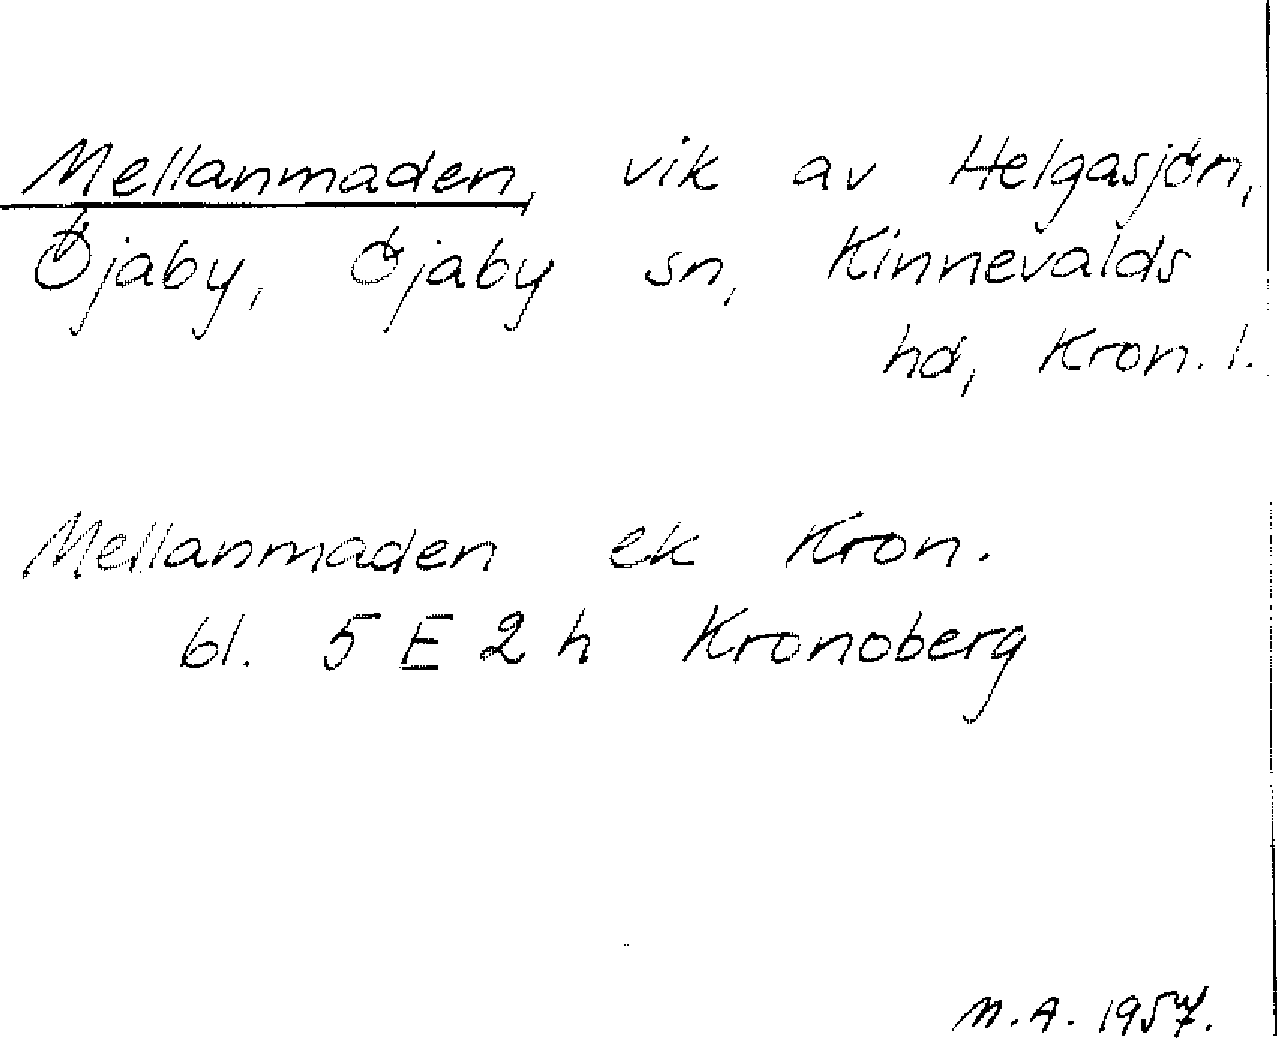 Mellanmaden, vik av Helgasjön,
Öjaby, Öjaby sn, Kinnevalds
hd, Kron. l.
Mellanmaden ek Kron.
bl. 5 E 2 h Kronoberg
M.A. 1957.